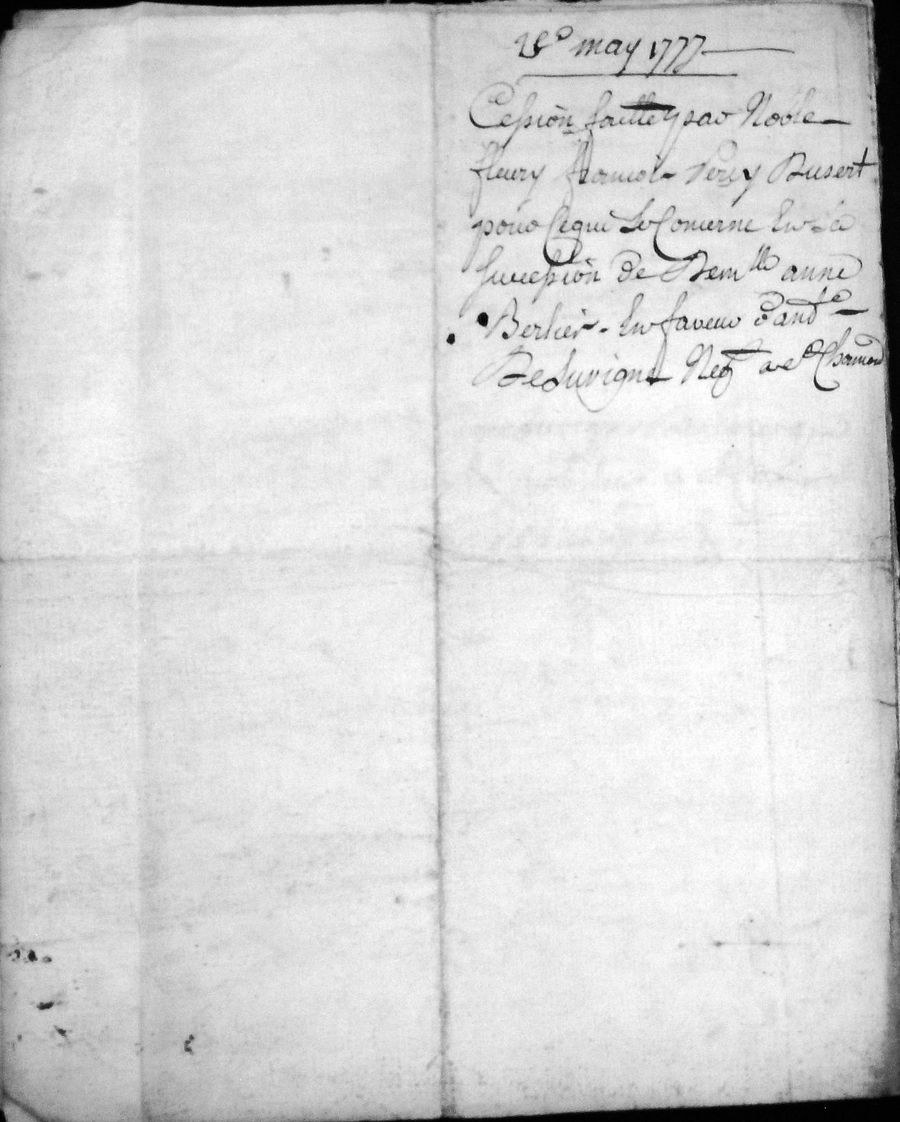 may 1777
Cession faitte par Noble
fleury francois Perey Busert
pour Ce qui Le Concerne En La
succession de Dem.lle anne
Berlier. En faveur d'and.e
Desuvigne Neg.t a S.t Chamond